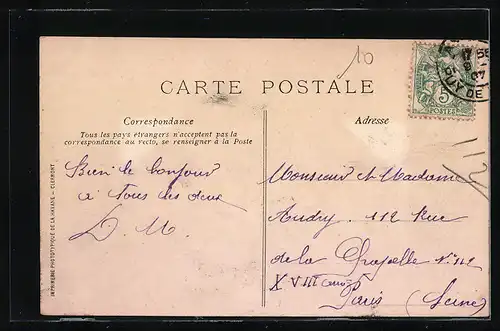 10
CARTE POSTALE
Correspondance
Tous les pays étrangers n'acceptent pas la
correspondance au recto, se renseigner à la Poste
Bien le bonjour
à Tous les deux
D. M.
IMPRIMERIE PHOTOTYPIQUE DE LA HAVANE - CLERMONT
Adresse
5
POSTES
PUY DE
112
Monsieur et Madame
Audry. 112 Rue
de la Chapelle N. 112
XVIII
Paris (Seine)